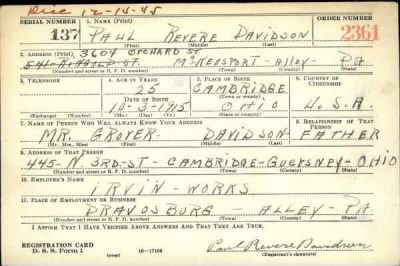 Disc 12-14-45
SERIAL NUMBER 1. NAME (Print) ORDER NUMBER
137 PAUL REVERE DAVIDSON 2361
(First) (Middle) (Last)
2. ADDRESS (Print) 3604 ORCHARD ST.
541 ST. MCKEESPORT - ALLEY - PA
(Number and street or R. F. D. number) (Town) (County) (State)
3. TELEPHONE 4. AGE IN YEARS 5. PLACE OF BIRTH 6. COUNTRY OF CITIZENSHIP
25 CAMBRIDGE
DATE OF BIRTH (Town or county)
10-3-1915 OHIO U.S.A.
(Exchange) (Number) (Mo.) (Day) (Yr.) (State or country)
7. NAME OF PERSON WHO WILL ALWAYS KNOW YOUR ADDRESS 8. RELATIONSHIP OF THAT PERSON
MR. GROVER DAVIDSON FATHER
(Mr., Mrs., Miss) (First) (Middle) (Last)
9. ADDRESS OF THAT PERSON
445-N 3RD-ST- CAMBRIDGE-GUERNSEY-OHIO
(Number and street or R. F. D. number) (Town) (County) (State)
10. EMPLOYER'S NAME
IRVIN-WORKS
11. PLACE OF EMPLOYMENT OR BUSINESS
DRAVOSBURG - ALLEY-PA
(Number and street or R. F. D. number) (Town) (County) (State)
I AFFIRM THAT I HAVE VERIFIED ABOVE ANSWERS AND THAT THEY ARE TRUE.
REGISTRATION CARD
D. S. S. Form 1 16-17105 Paul Revere Davidson
(Registrant's signature)